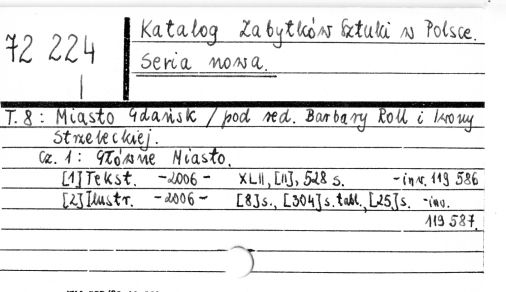 72 224
Katalog Zabytków Sztuki w Polsce.
Seria nowa.
T. 8: Miasto Gdańsk / pod red. Barbary Roll i Iwony
Strzeleckiej.
Cz. 1: Główne Miasto.
[1] Tekst. -2006- XLII, [II], 528 s. -inw. 119 586
[2] Ilustr. -2006- [8]s., [304]s. tabl., [25]s. -inw.
119 587.